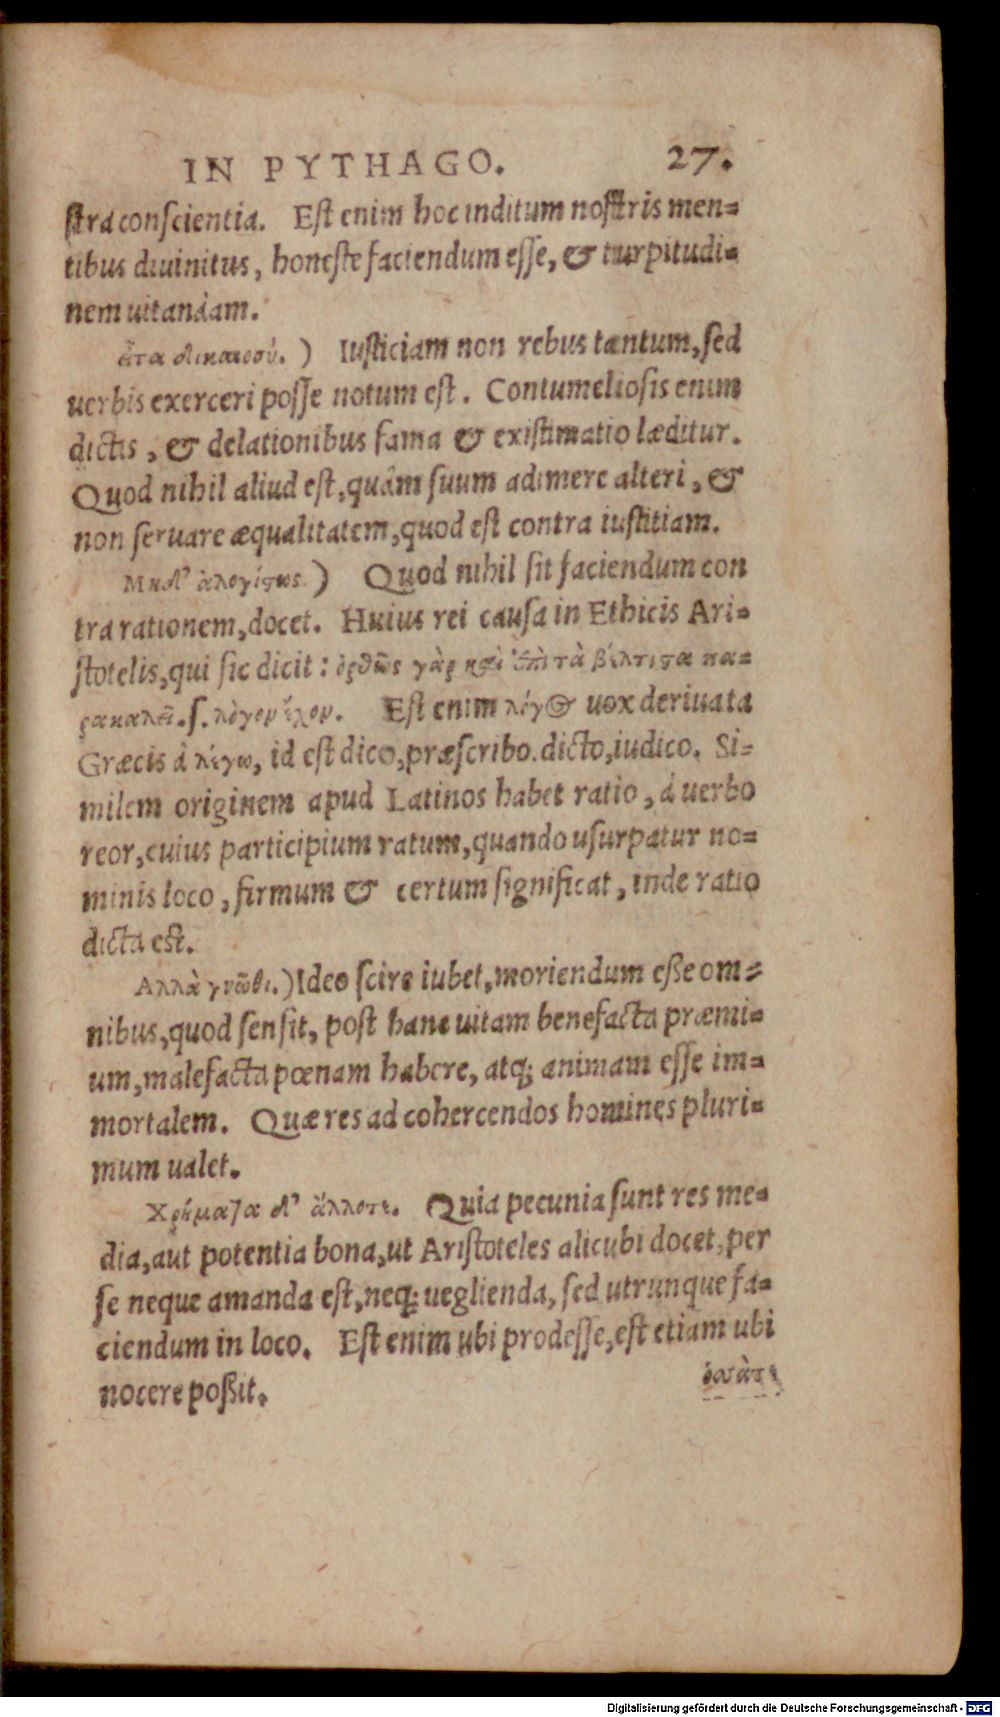 IN PYTHAGO. 27.
ſtra conſcientia. Eſt enim hoc inditum noſtris men=
tibus diuinitus, honeſte faciendum eſſe, & turpitudi=
nem uitandam.
εἶτα δικαιοσύ. ) Iuſticiam non rebus tantum, ſed
uerbis exerceri poſſe notum eſt. Contumelioſis enim
dictis, & delationibus fama & exiſtimatio læditur.
Quod nihil aliud eſt, quàm ſuum adimere alteri, &
non ſeruare æqualitatem, quod eſt contra iuſtitiam.
Μηδ' ἀλογίστως.) Quod nihil ſit faciendum con
tra rationem, docet. Huius rei cauſa in Ethicis Ari=
ſtotelis, qui ſic dicit: ὀρθῶς γὰρ καὶ ἐπὶ τὰ βέλτιστα πα=
ρακαλεῖ. ſ. λόγον ἔχον. Eſt enim λόγος uox deriuata
Græcis à λέγω, id eſt dico, præſcribo. dicto, iudico. Si=
milem originem apud Latinos habet ratio, à uerbo
reor, cuius participium ratum, quando uſurpatur no=
minis loco, firmum & certum ſignificat, inde ratio
dicta eſt.
Αλλὰ γνῶθι.) Ideo ſcire iubet, moriendum eße om=
nibus, quod ſenſit, poſt hanc uitam benefacta præmi=
um, malefacta pœnam habere, atq; animam eſſe im=
mortalem. Quæ res ad cohercendos homines pluri=
mum ualet.
Χρήματα δ' ἄλλοτε. Quia pecunia ſunt res me=
dia, aut potentia bona, ut Ariſtoteles alicubi docet, per
ſe neque amanda eſt, neq; ueglienda, ſed utrunque fa=
ciendum in loco. Eſt enim ubi prodeſſe, eſt etiam ubi
nocere poßit.
Digitalisierung gefördert durch die Deutsche Forschungsgemeinschaft - DFG